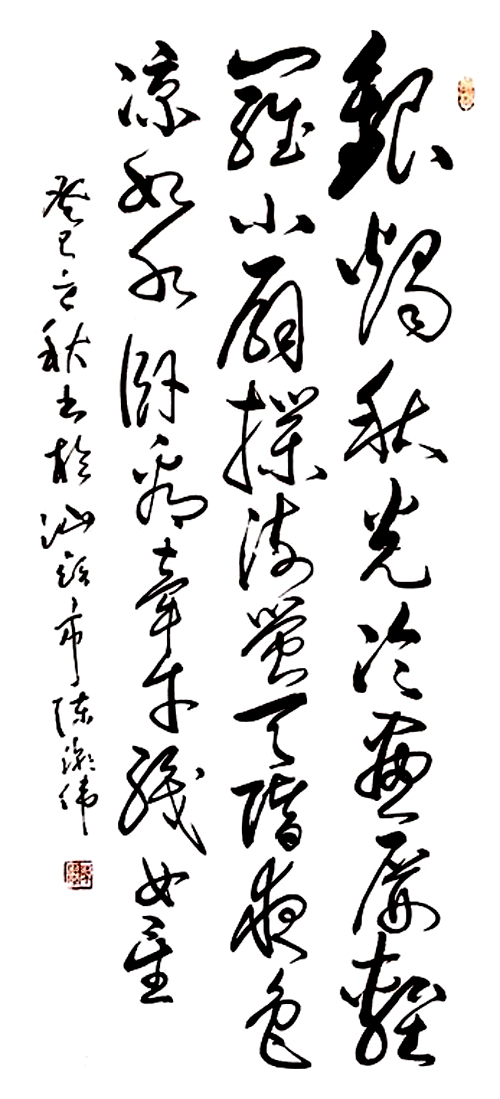 銀燭秋光冷畫屏輕
羅小扇撲流螢天階夜色
凉如水卧看牽牛織女星
癸巳立秋书於汕頭市陳偉